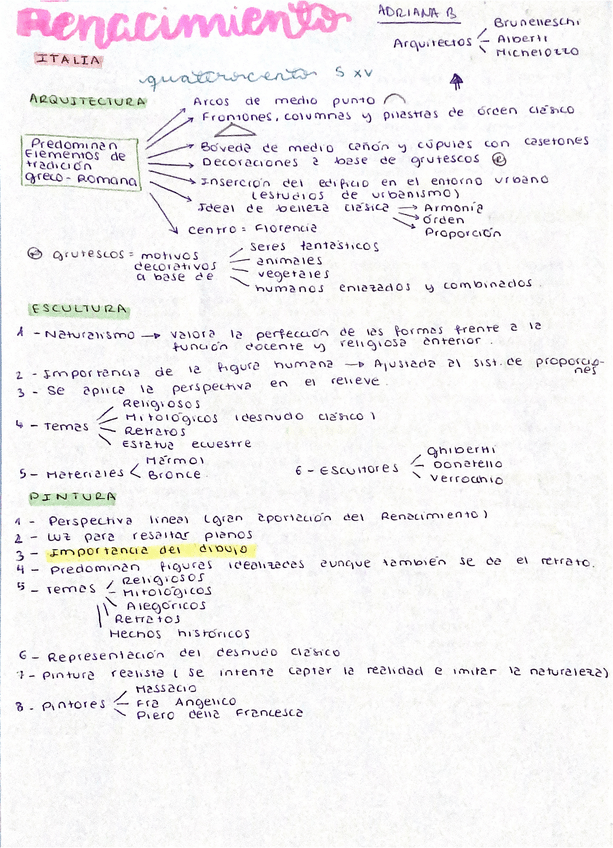 Renacimiento
ADRIANA B
Arquitectos
Brunelleschi
Alberti
Michelozzo
ITALIA
quattrocento S XV
ARQUITECTURA
Predominan
Elementos de
tradición
greco-Romana
Arcos de medio punto
Frontones, columnas y pilastras de órden clásico
Bóveda de medio cañón y cúpulas con casetones
Decoraciones a base de grutescos
Inserción del edificio en el entorno urbano
(estudios de urbanismo)
Ideal de belleza clásica
Armonía
Órden
Proporción
centro = Florencia
grutescos = motivos
decorativos
a base de
seres fantásticos
animales
vegetales
humanos enlazados y combinados.
ESCULTURA
1 - Naturalismo → valora la perfección de las formas frente a la
función docente y religiosa anterior.
2 - Importancia de la figura humana → Ajustada al sist. de proporcio-
nes
3 - Se aplica la perspectiva en el relieve.
4 - Temas
Religiosos
Mitológicos (desnudo clásico)
Retratos
Estatua ecuestre
5 - Materiales
Mármol
Bronce.
6 - Escultores
Ghiberti
Donatello
Verrochio
PINTURA
1 - Perspectiva lineal (gran aportación del Renacimiento)
2 - Luz para resaltar planos
3 - Importancia del dibujo
4 - Predominan figuras idealizadas aunque también se da el retrato.
5 - Temas
Religiosos
Mitológicos
Alegóricos
Retratos
Hechos históricos
6 - Representación del desnudo clásico
7 - Pintura realista (se intenta captar la realidad e imitar la naturaleza)
8 - Pintores
Massacio
Fra Angelico
Piero della Francesca